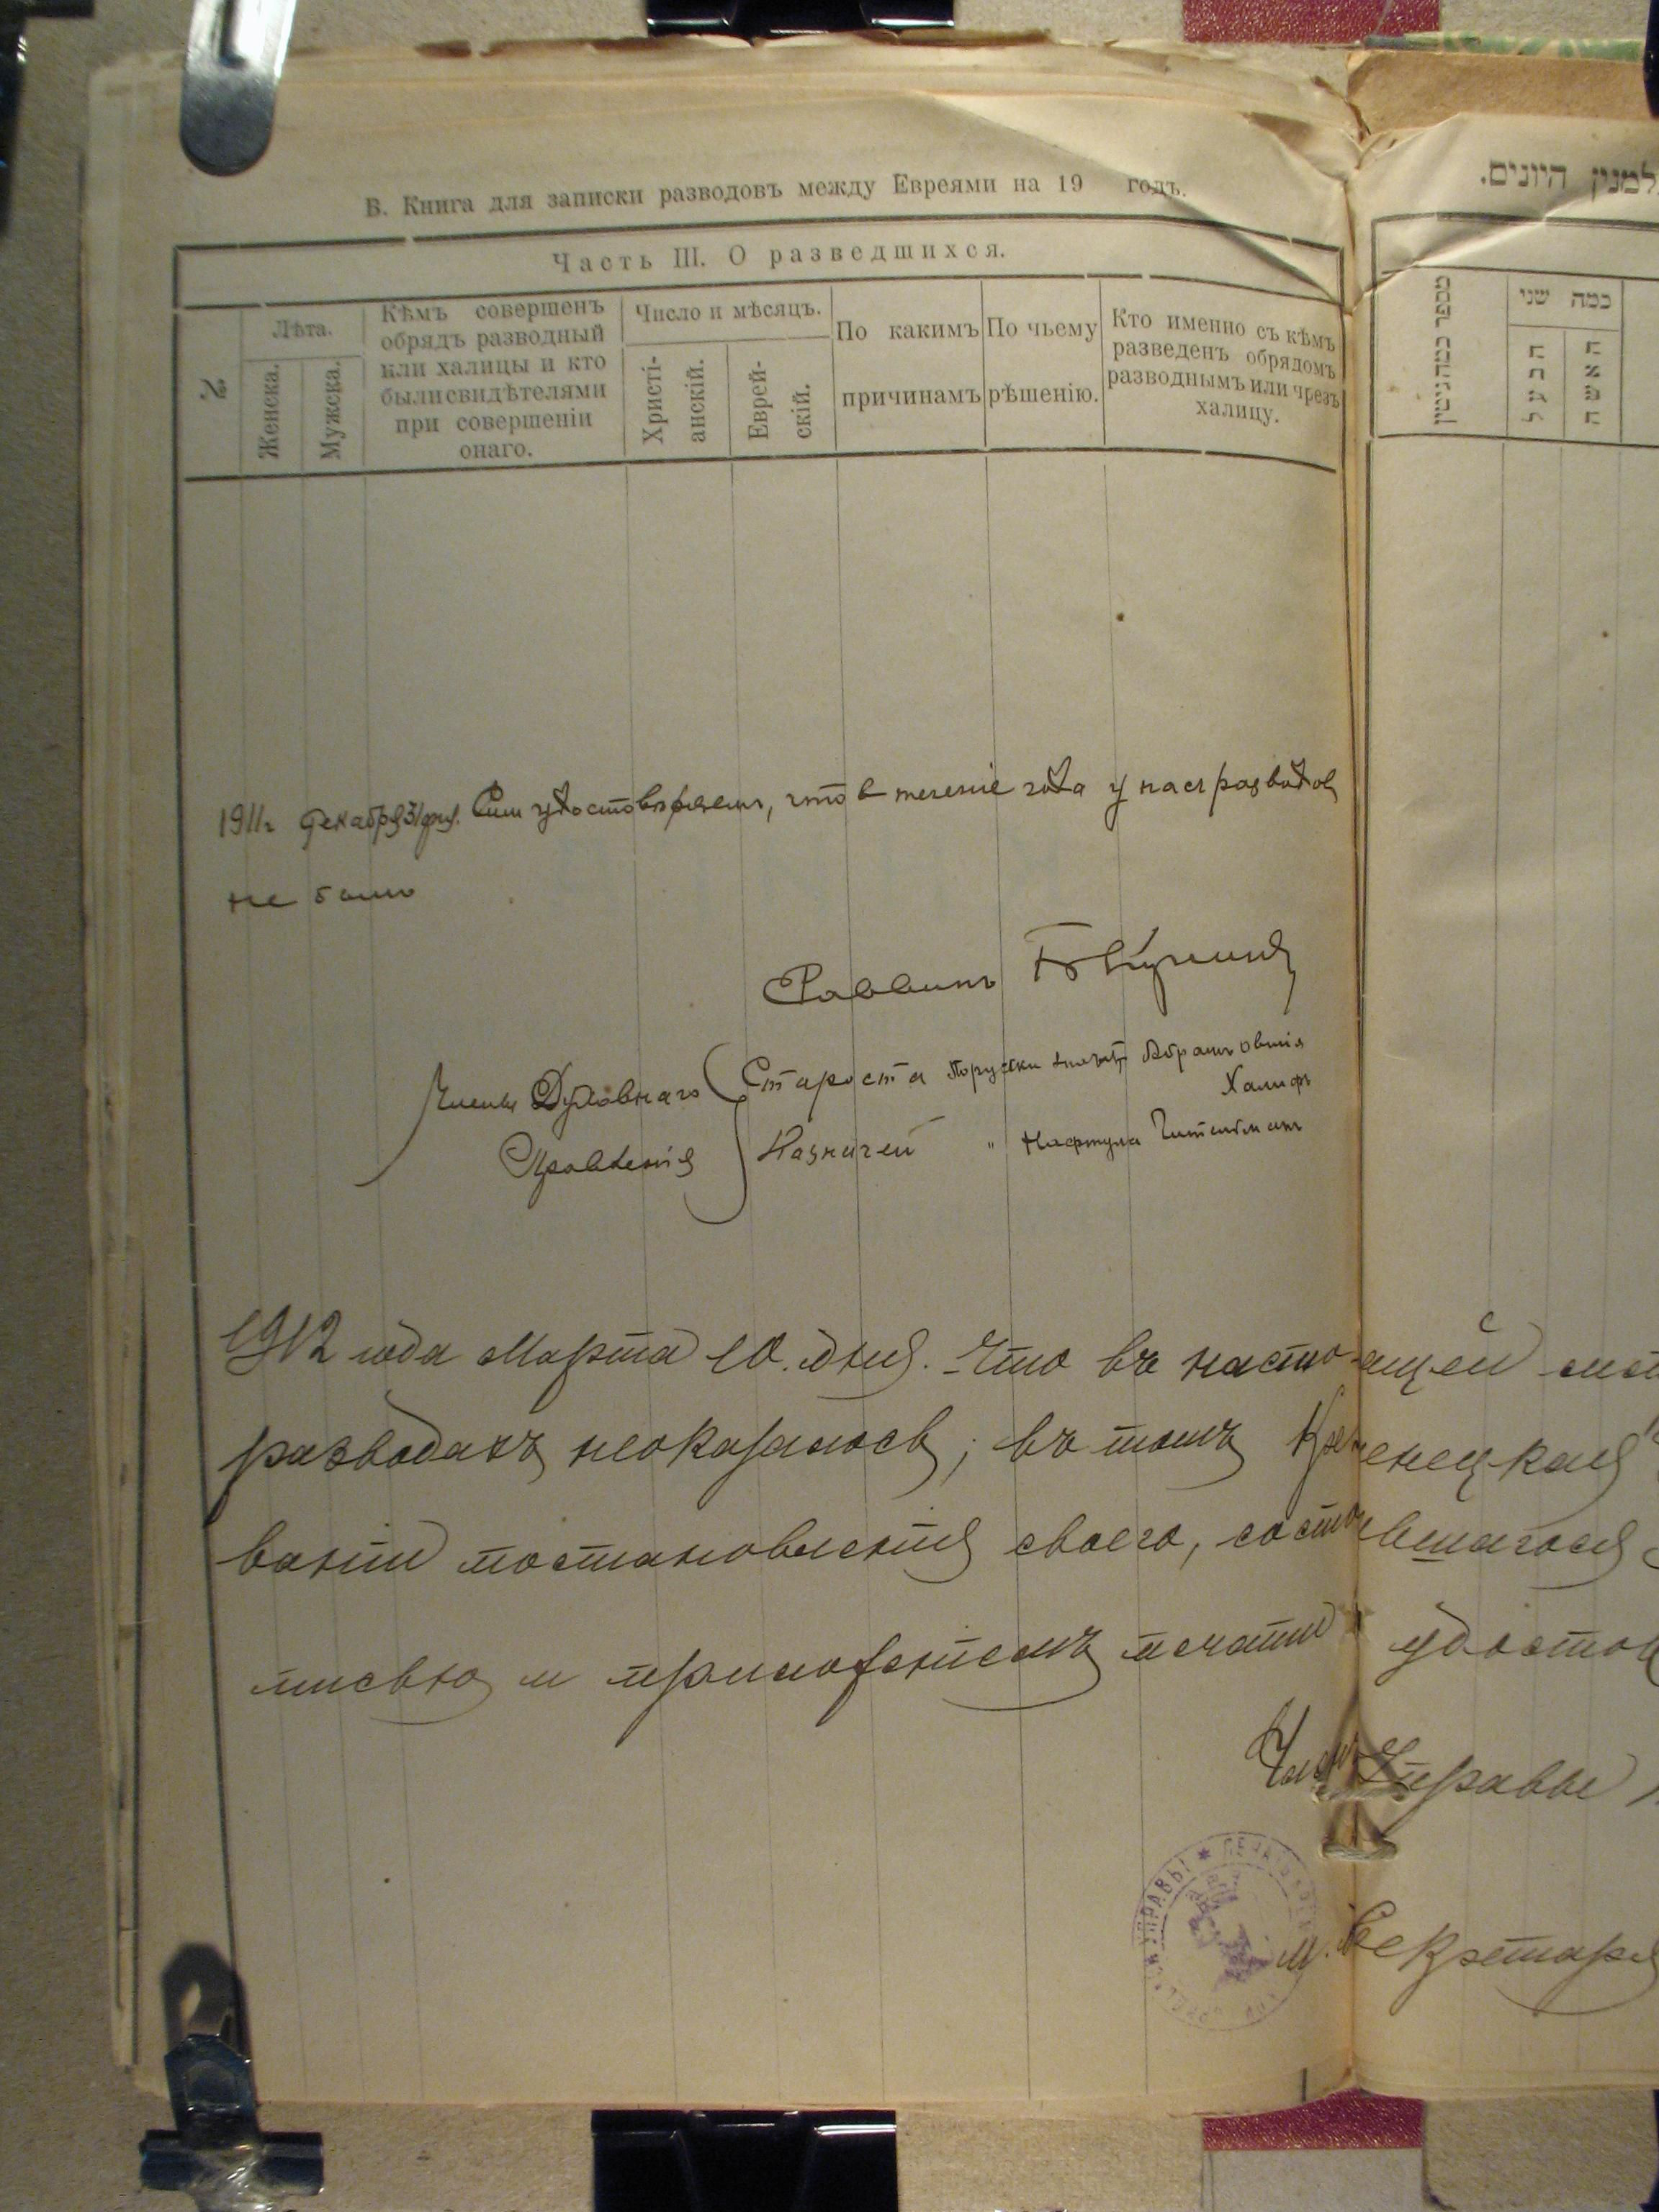 В. Книга для записки разводовъ между Евреями на 19 годъ.
Часть III. О разведшихся.
№
Лѣта.
Женска.
Мужска.
Кѣмъ совершенъ
обрядъ разводный
или халицы и кто
были свидѣтелями
при совершеніи
онаго.
Число и мѣсяцъ.
Христі-
анскій.
Еврей-
скій.
По какимъ
причинамъ
По чьему
рѣшенію.
Кто именно съ кѣмъ
разведенъ обрядомъ
разводнымъ или чрезъ
халицу.
למנין היונים.
מספר כמה גיטין
כמה שני
הבעל
האשה
1911г Декабря 31 дня. Сим удостовѣряем, что в теченіе года у нас разводов
не было
Раввинъ
Члены Духовнаго Староста Абрамъ
Правленія Казначей " Нафтула
1912 года Марта 10. дня. Что въ настоящей
разводахъ неоказалось; въ томъ Кременецкая
ваніи постановленія своего, состоявшагося
писью и приложеніемъ печати удостов
Членъ Управы
И. Секретаря
УПРАВЫ * ПЕЧА